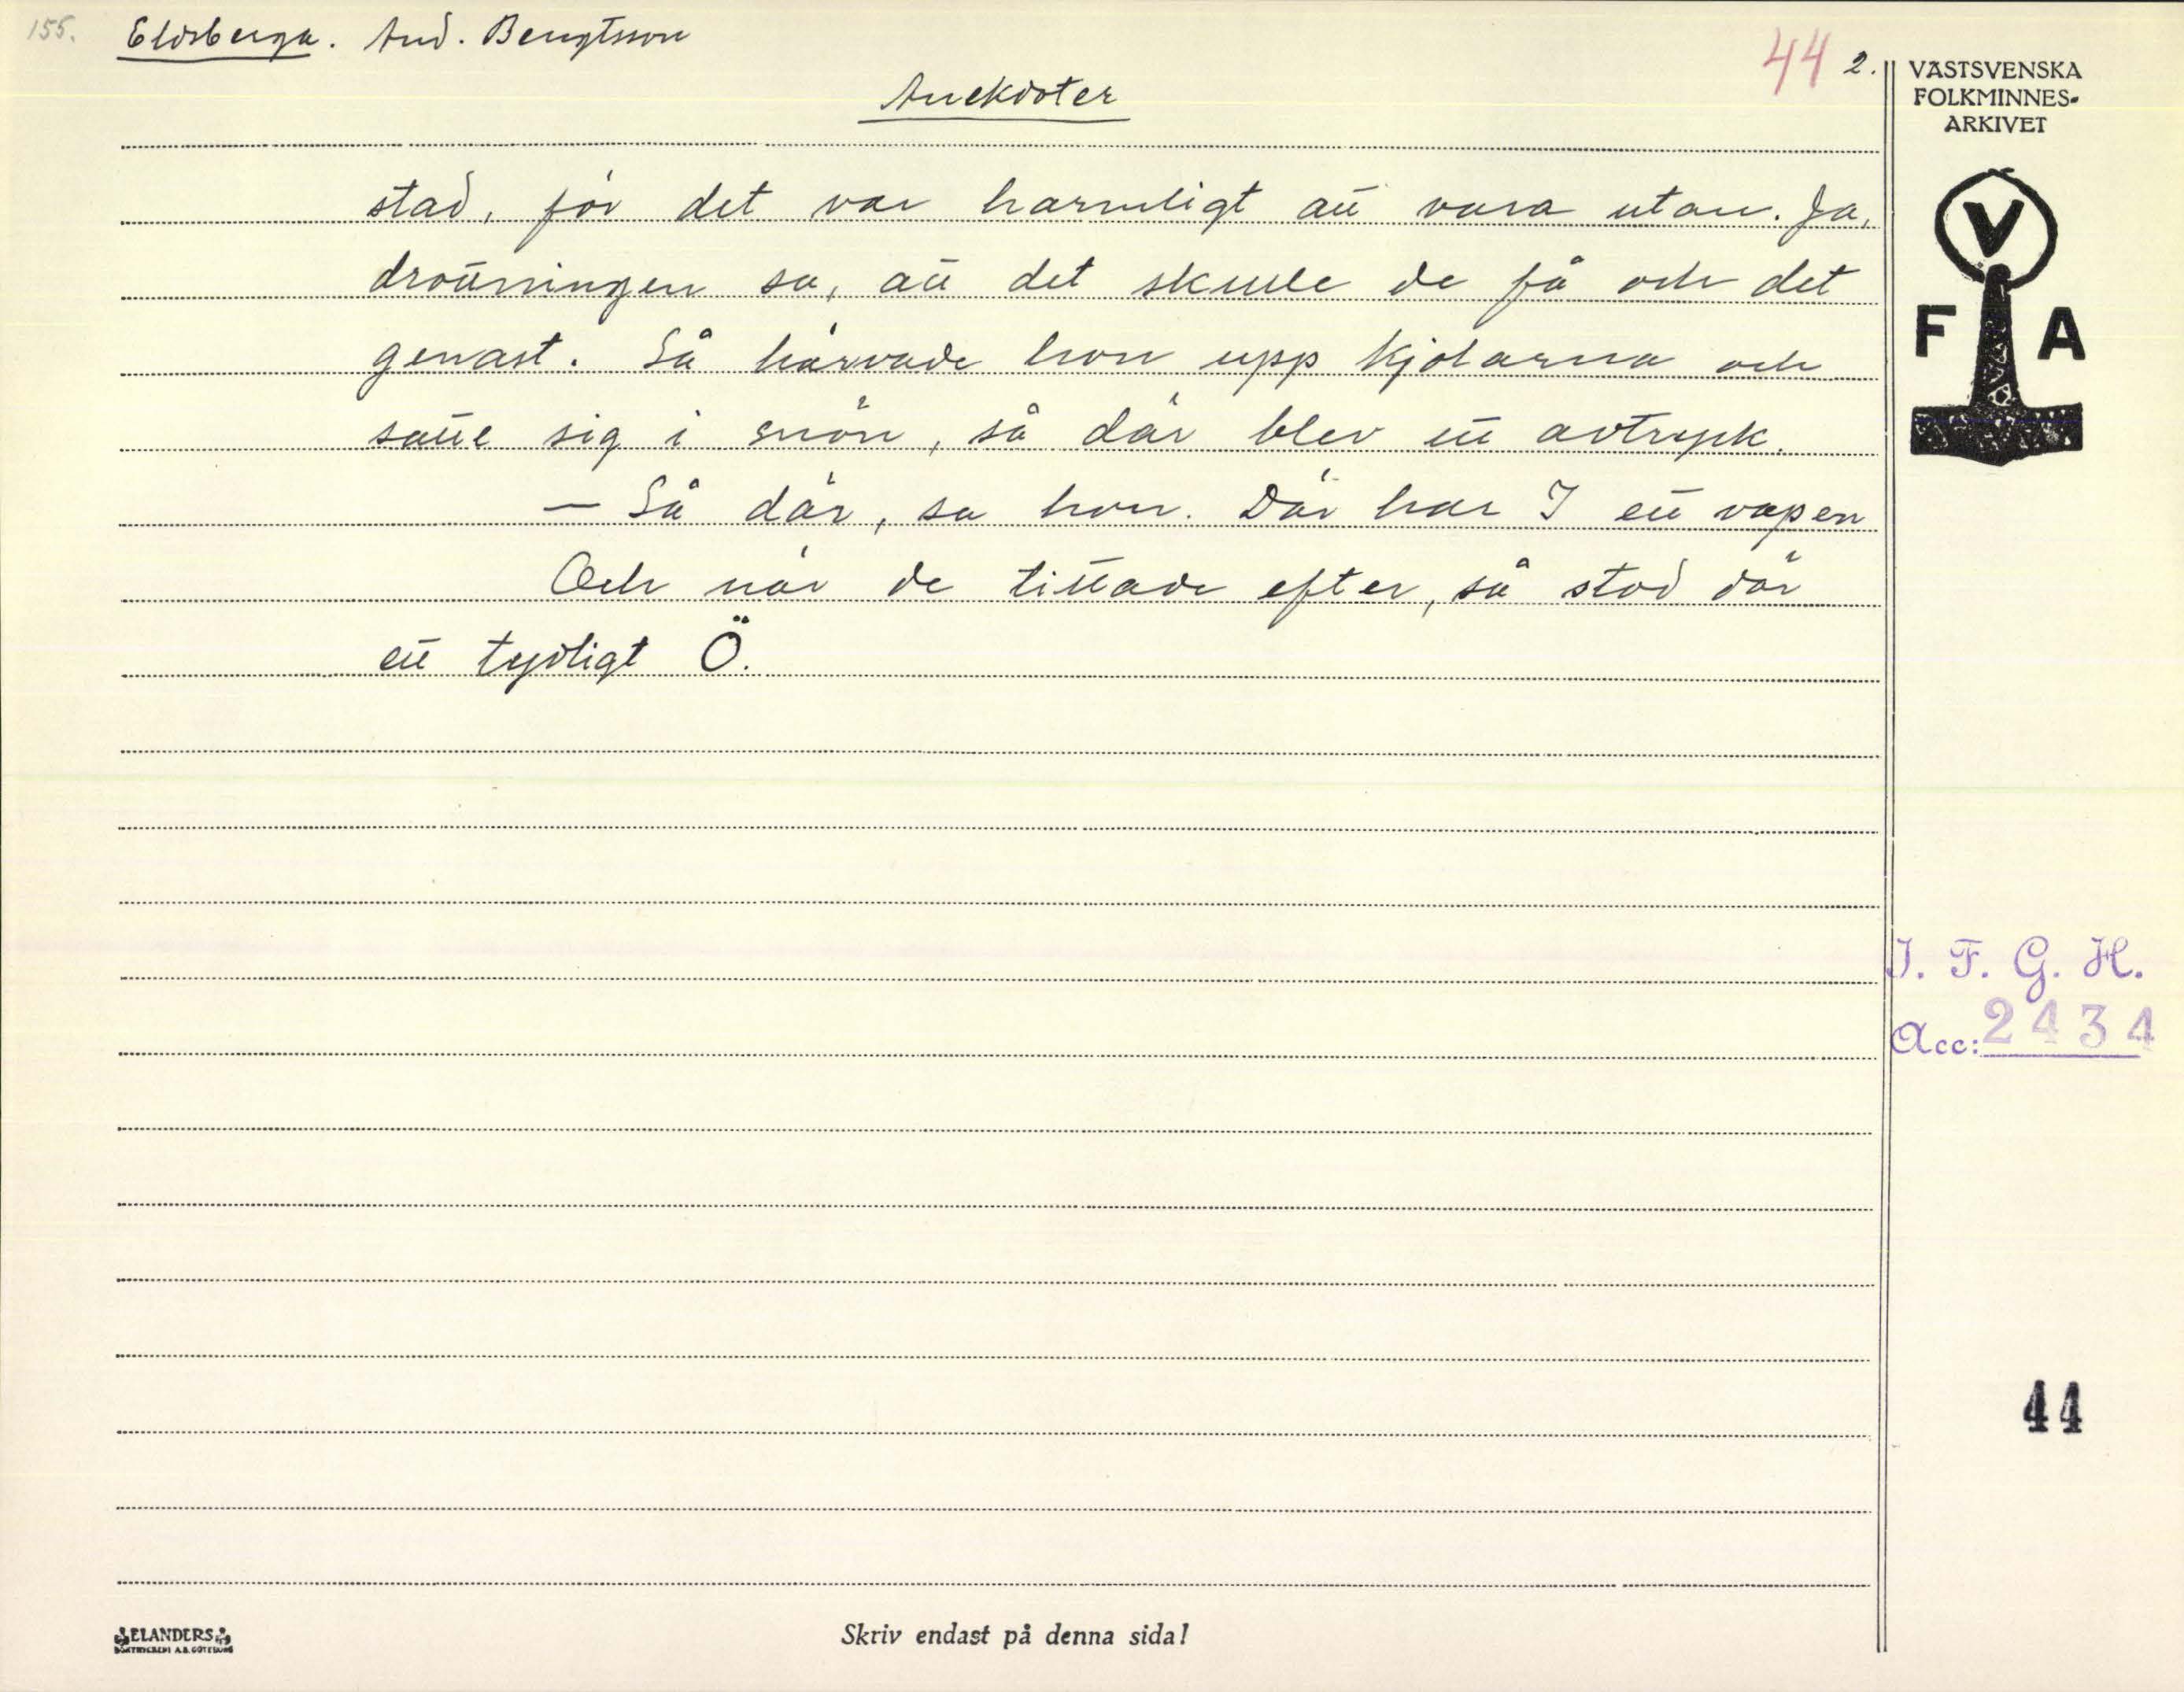 155. Eldsberga. And. Bengtsson
44 2.
Anekdoter
VÄSTSVENSKA
FOLKMINNES-
ARKIVET
V
F A
stad, för det var harmligt att vara utan. Ja,
drottningen sa, att det skulle de få och det
genast. Så härvade hon upp kjolarna och
satte sig i snön, så där blev ett avtryck.
— Så där, sa hon. Där har I ett vapen
Och när de tittade efter, så stod där
ett tydligt Ö.
I. F. G. H.
Acc: 2434
44
ELANDERS
BOKTRYCKERI A.B. GÖTEBORG
Skriv endast på denna sida!